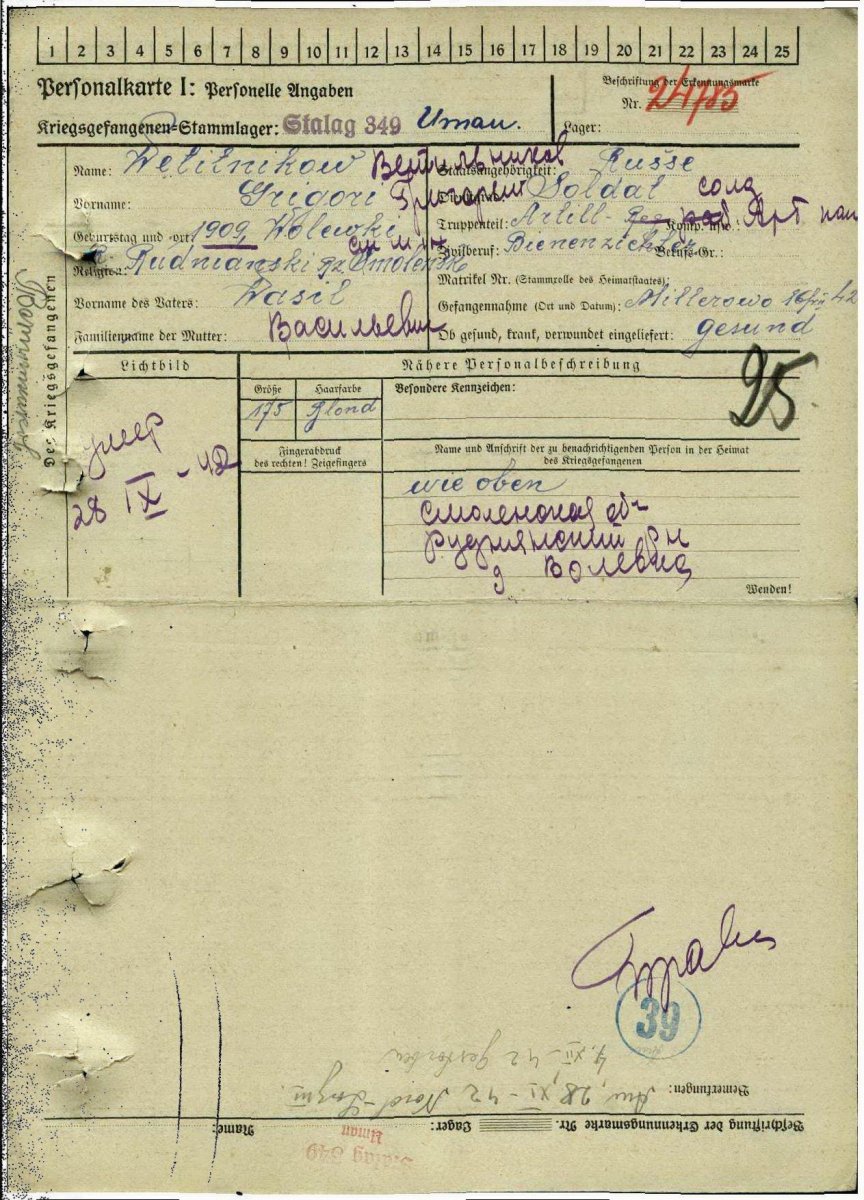 1 2 3 4 5 6 7 8 9 10 11 12 13 14 15 16 17 18 19 20 21 22 23 24 25
Personalkarte I: Personelle Angaben
Beschriftung der Erkennungsmarke
Nr. 24785
Kriegsgefangenen-Stammlager: Stalag 349 Uman.
Lager:
Des Kriegsgefangenen
Name: Wetitnikow
Staatsangehörigkeit: Russe
Vorname: Grigori Григорий
Soldat солд
Truppenteil: Artill-
Арт
Geburtstag und -ort: 1909 Wolewki
Zivilberuf: Bienenzichter
Berufs-Gr.:
R. Rudnianski Gz Smolensk
Religion:
Matrikel Nr. (Stammrolle des Heimatstaates):
Vorname des Vaters: Wasil
Gefangennahme (Ort und Datum): Millerowo 16 42
Familienname der Mutter:
Васильевич
Ob gesund, krank, verwundet eingeliefert: gesund
Lichtbild
Nähere Personalbeschreibung
Größe
Haarfarbe
Besondere Kennzeichen:
175
Blond
95
умер
28 IX - 42
Fingerabdruck
des rechten! Zeigefingers
Name und Anschrift der zu benachrichtigenden Person in der Heimat
des Kriegsgefangenen
wie oben
Смоленская об-
Руднянский рн
д Волевка
Wenden!
39
4. XII - 42 Gestorben
Bemerkungen: Am 28, XI - 42 Nord-
Beschriftung der Erkennungsmarke Nr.
Lager:
Name:
Stalag 349
Uman